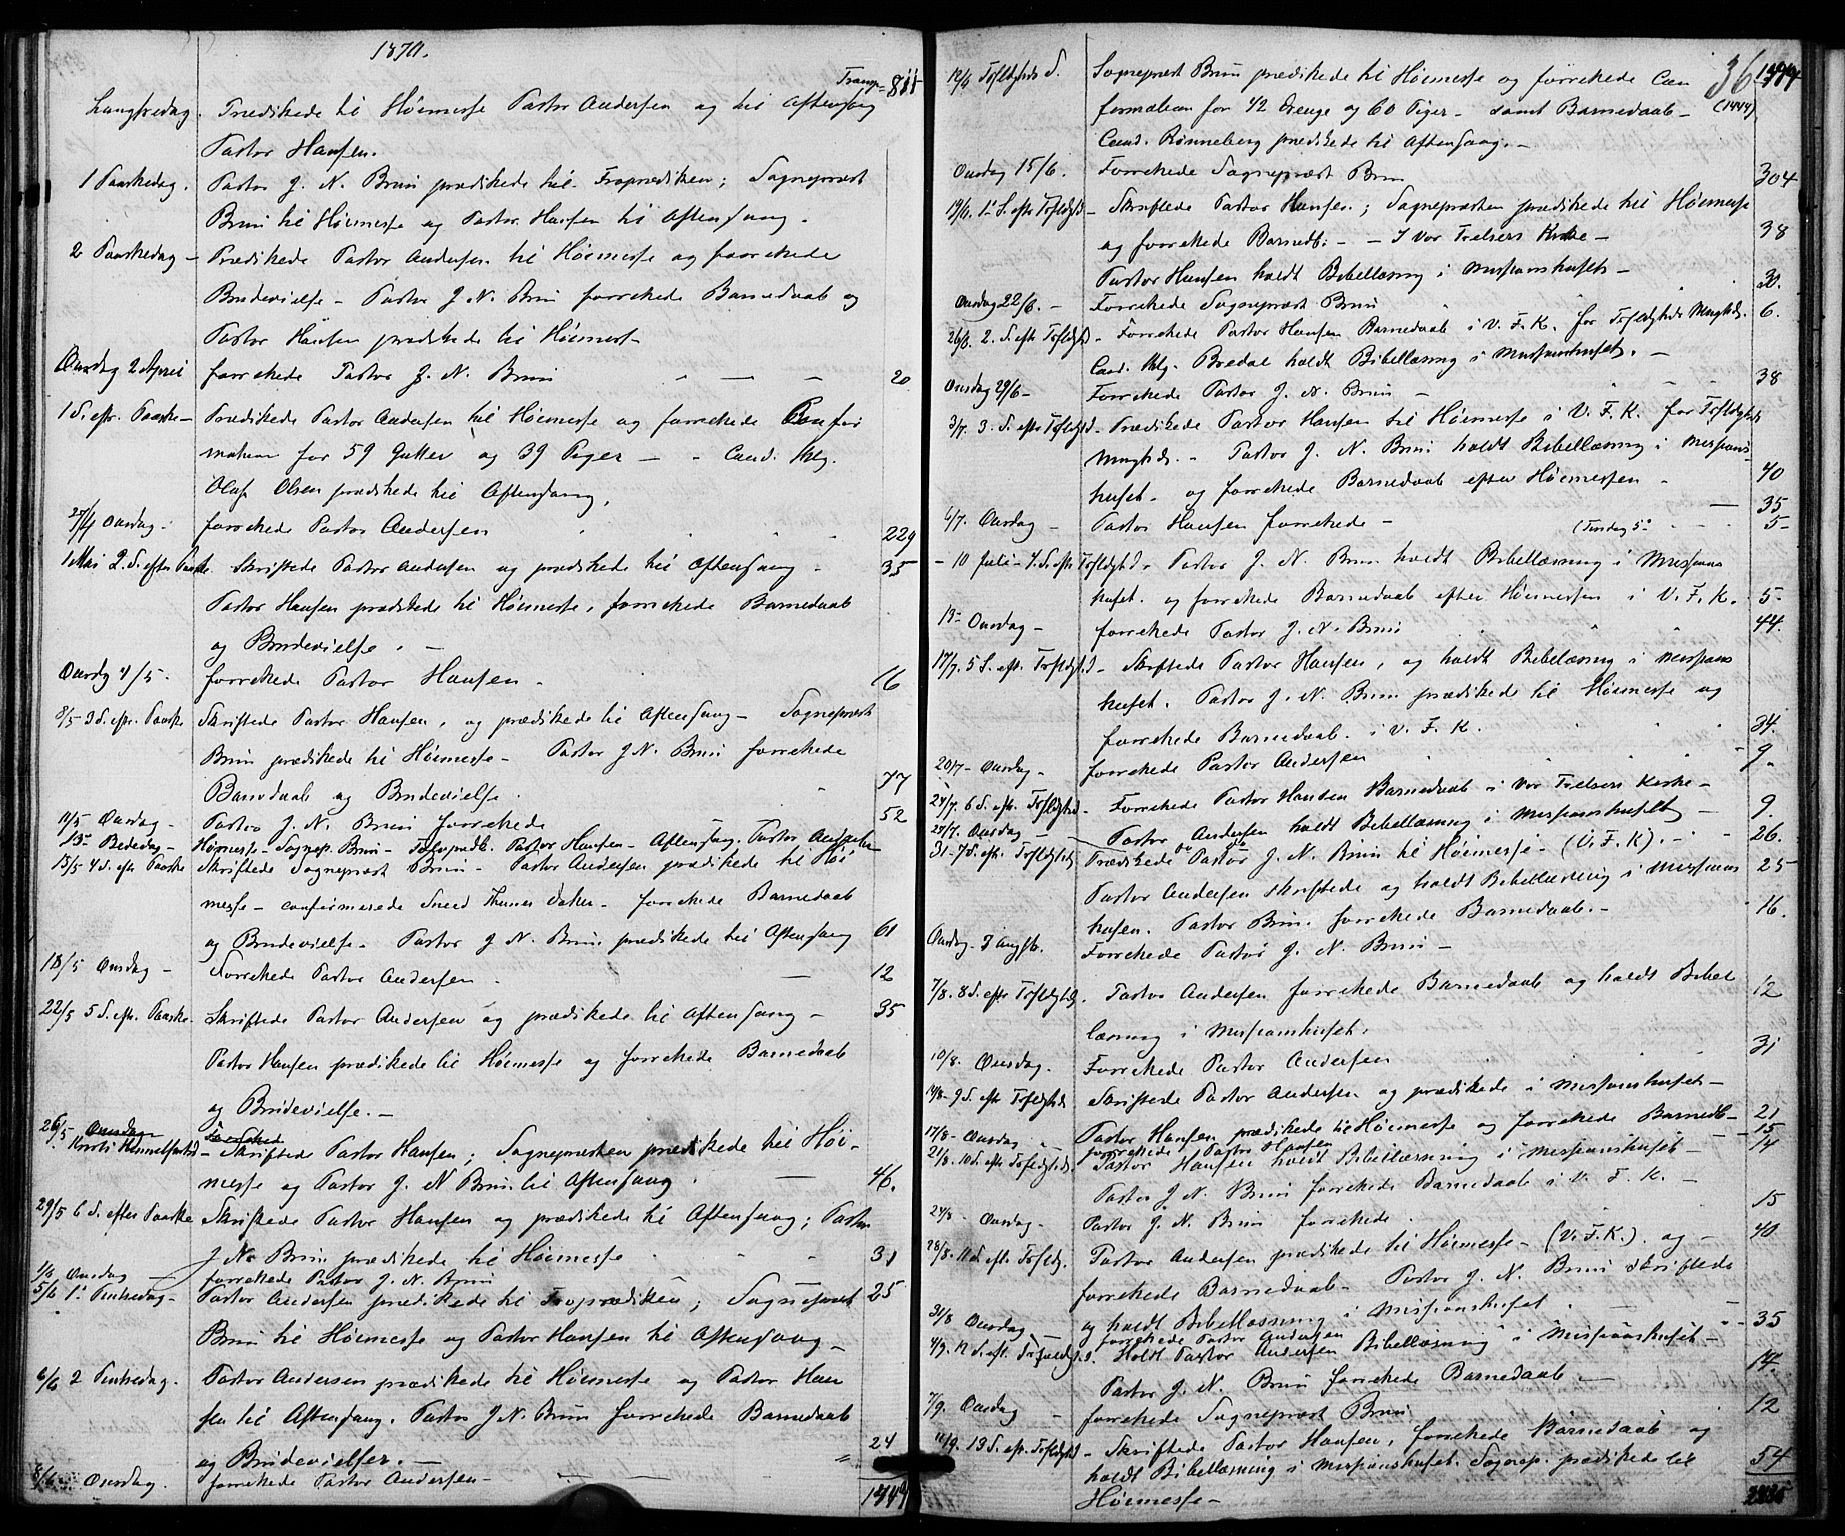 1870.
Transp. 811
Langfredag. Prædikede til Høimesse Pastor Andersen og til Aftensang
Pastor Hansen.
1 Paaskedag. Pastor J. N. Brun prædikede til Froprædiken; Sognepræst
Brun til Høimesse og Pastor Hansen til Aftensang.
2 Paaskedag – Prædikede Pastor Andersen til Høimesse og forrettede
Brudevielse – Pastor J. N. Brun forrettede Barnedaab og
Pastor Hansen prædikede til Høimesse
Onsdag 2 April forrettede Pastor J. N. Brun 20
1 S. eft. Paaske – Prædikede Pastor Andersen til Høimesse og forrettede Confir
mation for 59 Gutter og 39 Piger – Cand. thlg.
Oluf Olsen prædikede til Aftensang.
27/4 Onsdag – forrettede Pastor Andersen 229
1 Mai 2. S. efter Paaske. Skriftede Pastor Andersen og prædikede til Aftensang – 35
Pastor Hansen prædikede til Høimesse, forrettede Barnedaab
og Brudevielse. –
Onsdag 4/5. forrettede Pastor Hansen – 16
8/5 3 S. eft. Paaske Skriftede Pastor Hansen, og prædikede til Aftensang – Sognepræst
Brun prædikede til Høimesse – Pastor J. N. Brun forrettede
Barnedaab og Brudevielse. 77
11/5 Onsdag – Pastor J. N. Brun forrettede 52
13 Bededag – Høimesse Sognep. Brun – Froprædk. Pastor Hansen – Aftensang. Pastor Andersen
15/5 4 S. eft Paaske Skriftede Sognepræst Brun – Pastor Andersen prædikede til Høi
messe – confirmerede forrettede Barnedaab
og Brudevielse – Pastor J. N. Brun prædikede til Aftensang 61
18/5 Onsdag – Forrettede Pastor Andersen. 12
22/5 5 S. eft. Paaske. Skriftede Pastor Andersen og prædikede til Aftensang – 35
Pastor Hansen prædikede til Høimesse og forrettede Barnedaab
og Brudevielse. –
26/5 Onsdag Forrettede
Kristi Himmelfartsd – Skriftede Pastor Hansen; Sognepræsten prædikede til Høi-
messe og Pastor J. N. Brun til Aftensang. 46.
29/5 6 S. efter Paaske Skriftede Pastor Hansen og prædikede til Aftensang; Pastor
J. N. Brun prædikede til Høimesse 31
1/6 Onsdag – forrettede Pastor J. N. Brun
5/6 1 Pintsedag – Pastor Andersen prædikede til Froprædiken; Sognepræst 25
Brun til Høimesse og Pastor Hansen til Aftensang –
6/6 2 Pintsedag. Pastor Andersen prædikede til Høimesse og Pastor Han
sen til Aftensang. Pastor J. N. Brun forrettede Barnedaab
og Brudevielser. – 24
8/6 Onsdag. forrettede Pastor Andersen –
1444
36 1444
(1444)
12/6 Trefoldigheds S. Sognepræst Brun prædikede til Høimesse og forrettede Con
firmation for 42 Drenge og 60 Piger – samt Barnedaab –
Cand. Rønneberg prædikede til Aftensang. –
Onsdag 15/6. Forrettede Sognepræst Brun 304
19/6. 1 S. efter Trefoldighd – Skriftede Pastor Hansen; Sognepræsten prædikede til Høimesse
og forrettede Barned. – – I Vor Frelsers Kirke – 38
Pastor Hansen holdt Bibellæsning i Missionshuset – 30.
Onsdag 22/6. – Forrettede Sognepræst Brun 6.
26/6. 2. S. eft Trefoldighd – Forrettede Pastor Hansen Barnedaab i V. F. K. for Trefoldigheds Mnghd.
Cand. thlg. Bredal holdt Bibellæsning i Missionshuset. –
Onsdag 29/6 – Forrettede Pastor J. N. Brun – 38
3/7. 3. S. eft Trefoldighd – Prædikede Pastor Hansen til Høimesse i V. F. K. for Trefoldigheds
Mnghd. – Pastor J. N. Brun holdt Bibellæsning i Missions-
huset – og forrettede Barnedaab efter Høimessen – 40
6/7. Onsdag – Pastor Hansen forrettede – 35
(Tirsdag 5. 5 –
– 10 Juli – 4. S. eft Trefoldighd. Pastor J. N. Brun holdt Bibellæsning i Missions
huset. og forrettede Barnedaab efter Høimessen i V. F. K. 5 –
13 – Onsdag – forrettede Pastor J. N. Brun 44.
17/7. 5 S. eft. Trefoldighd – Skriftede Pastor Hansen, og holdt Bibelæsning i Missions
huset. Pastor J. N. Brun prædikede til Høimesse og
forrettede Barnedaab. i V. F. K. 34.
20/7 – Onsdag – forrettede Pastor Andersen 9.
24/7. 6 S. eft. Trefoldighd. Forrettede Pastor Hansen Barnedaab i Vor Frelsers Kirke –
Pastor Andersen holdt Bibellæsning i Missionshuset – 9.
27/7. Onsdag – do do 26.
31 – 7 S. eft. Trefoldighd Prædikede Pastor J. N. Brun til Høimesse – (V. F. K). –
Pastor Andersen skriftede og holdt Bibellæsning i Missions 25
husen. Pastor Brun. forrettede Barnedaab. – 16.
Onsdag. 3 Augst. Forrettede Pastor J. N. Brun –
7/8. 8 S. eft Trefoldighd. Pastor Andersen forrettede Barnedaab og holdt Bibel 12
læsning i Missionshuset.
10/8. Onsdag. Forrettede Pastor Andersen 31
14/8 – 9 S. eft Trefoldighds Skriftede Pastor Andersen og prædikede i Missionshuset –
Pastor Hansen prædikede til Høimesse og forrettede Barnedb – 21
17/8 – Onsdag – forrettede Pastor Hansen 15
21/8. 10 S. eft Trefoldighds. Pastor Hansen holdt Bibellæsning i Missionshuset – 14
Pastor J. N. Brun forrettede Barnedaab i V. F. K. –
24/8 – Onsdag – Pastor J. N. Brun forrettede. 15
28/8. 11 S. eft Trefoldg. Pastor Andersen prædikede til Høimesse – (V. F. K.). og – 40
forrettede Barnedaab – Pastor J. N. Brun skriftede
og holdt Bibellæsning i Missionshuset.
31/8 Onsdag – forrettede Pastor Andersen 35
4/9. 12 S. eft. Trefoldighd. Holdt Pastor Andersen Bibellæsning i Missionshuset –
Pastor J. N. Brun forrettede Barnedaab – 14.
7/9. Onsdag – forrettede Sognepræst Brun 12
11/9. 13 S. eft. Trefoldighd – Skriftede Pastor Hansen, forrettede Barnedaab og
holdt Bibellæsning i Missionshuset. Sognep. prædikede til 54
Høimesse –